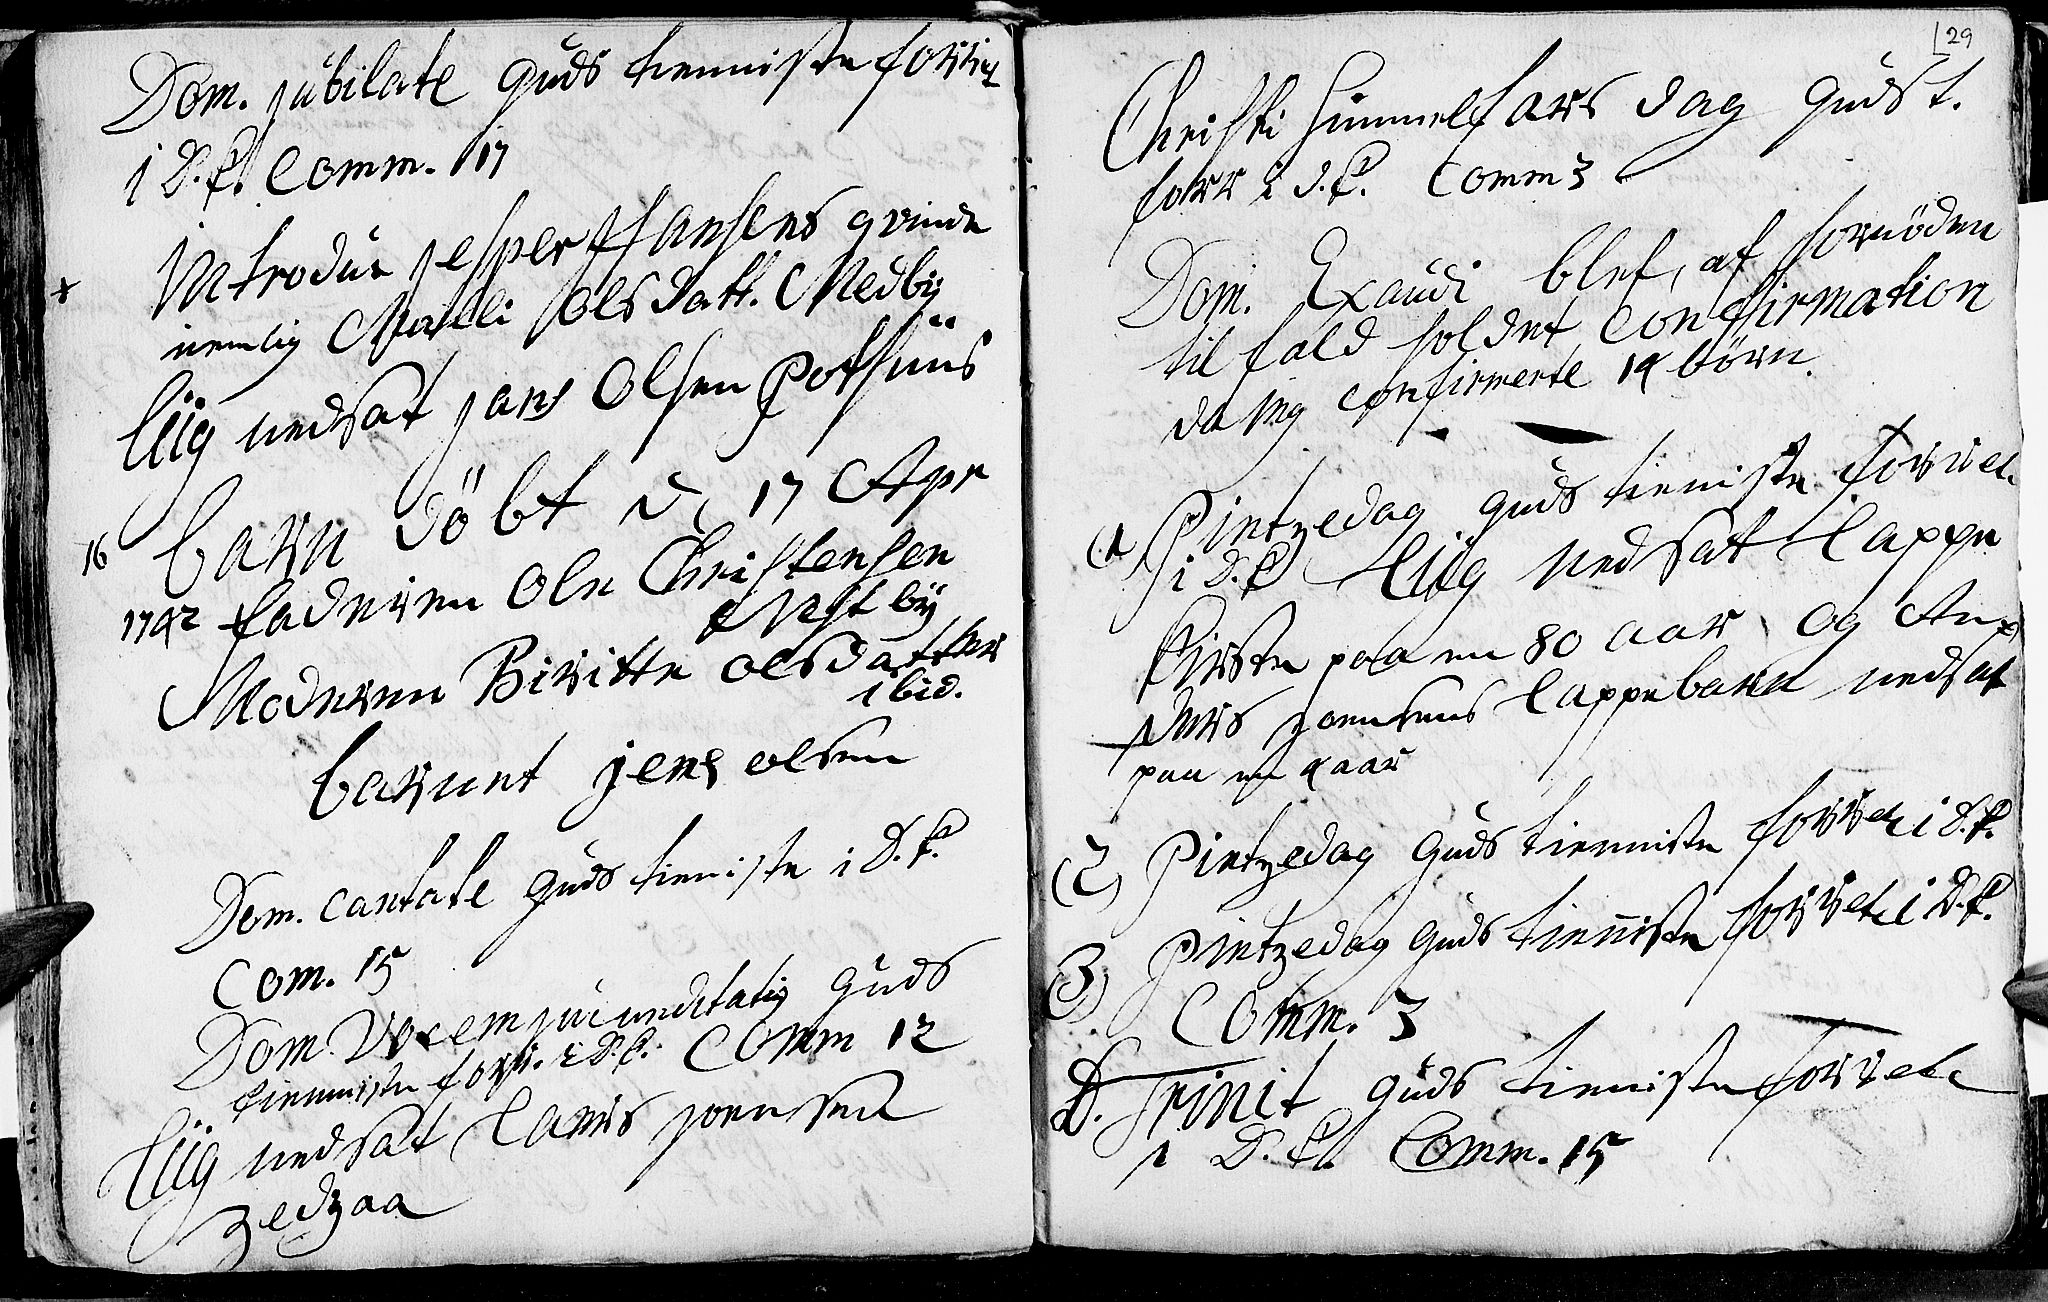 Dom. jubilate Guds tienniste forret
i D.K. Comm. 17
Introdu: Jesper Hansens qvinde
+ nemlig Malli Olsdatt. Medby
Liig nedsat Jans Olsen
barn döbt d. 17 Apr
16
1742 Faderen Ole Christensen
Vestby
Moderen Biritte Olsdatter
ibid.
barnet Jens Olsen
Dom. Cantate Guds tieniste i D.K.
Com. 15
Dom. Vocem jucunditatis Guds
tienniste forr. i D.K. Comm 12
Liig nedsat Joensen
29
Christi Himmelfars dag Gudst.
forr i D.K. Comm 3
Dom. Exaudi blef, af fornöden
tilfald holdet Confirmation
da jeg confirmerte 14 börn.
(1) Pintzedag Guds tieniste forret
i D.K. Liig nedsat Lappe
Kirsten paa en 80 aar og An
ders Joensens Lappebarn nedsat
paa en 4 aar
(2) Pintzedag Guds tienniste forret i D.K.
(3) Pintzedag Guds tienniste forret i D.K.
Comm. 3
D. Trinit Guds tienniste forret
i D.K. Comm. 15